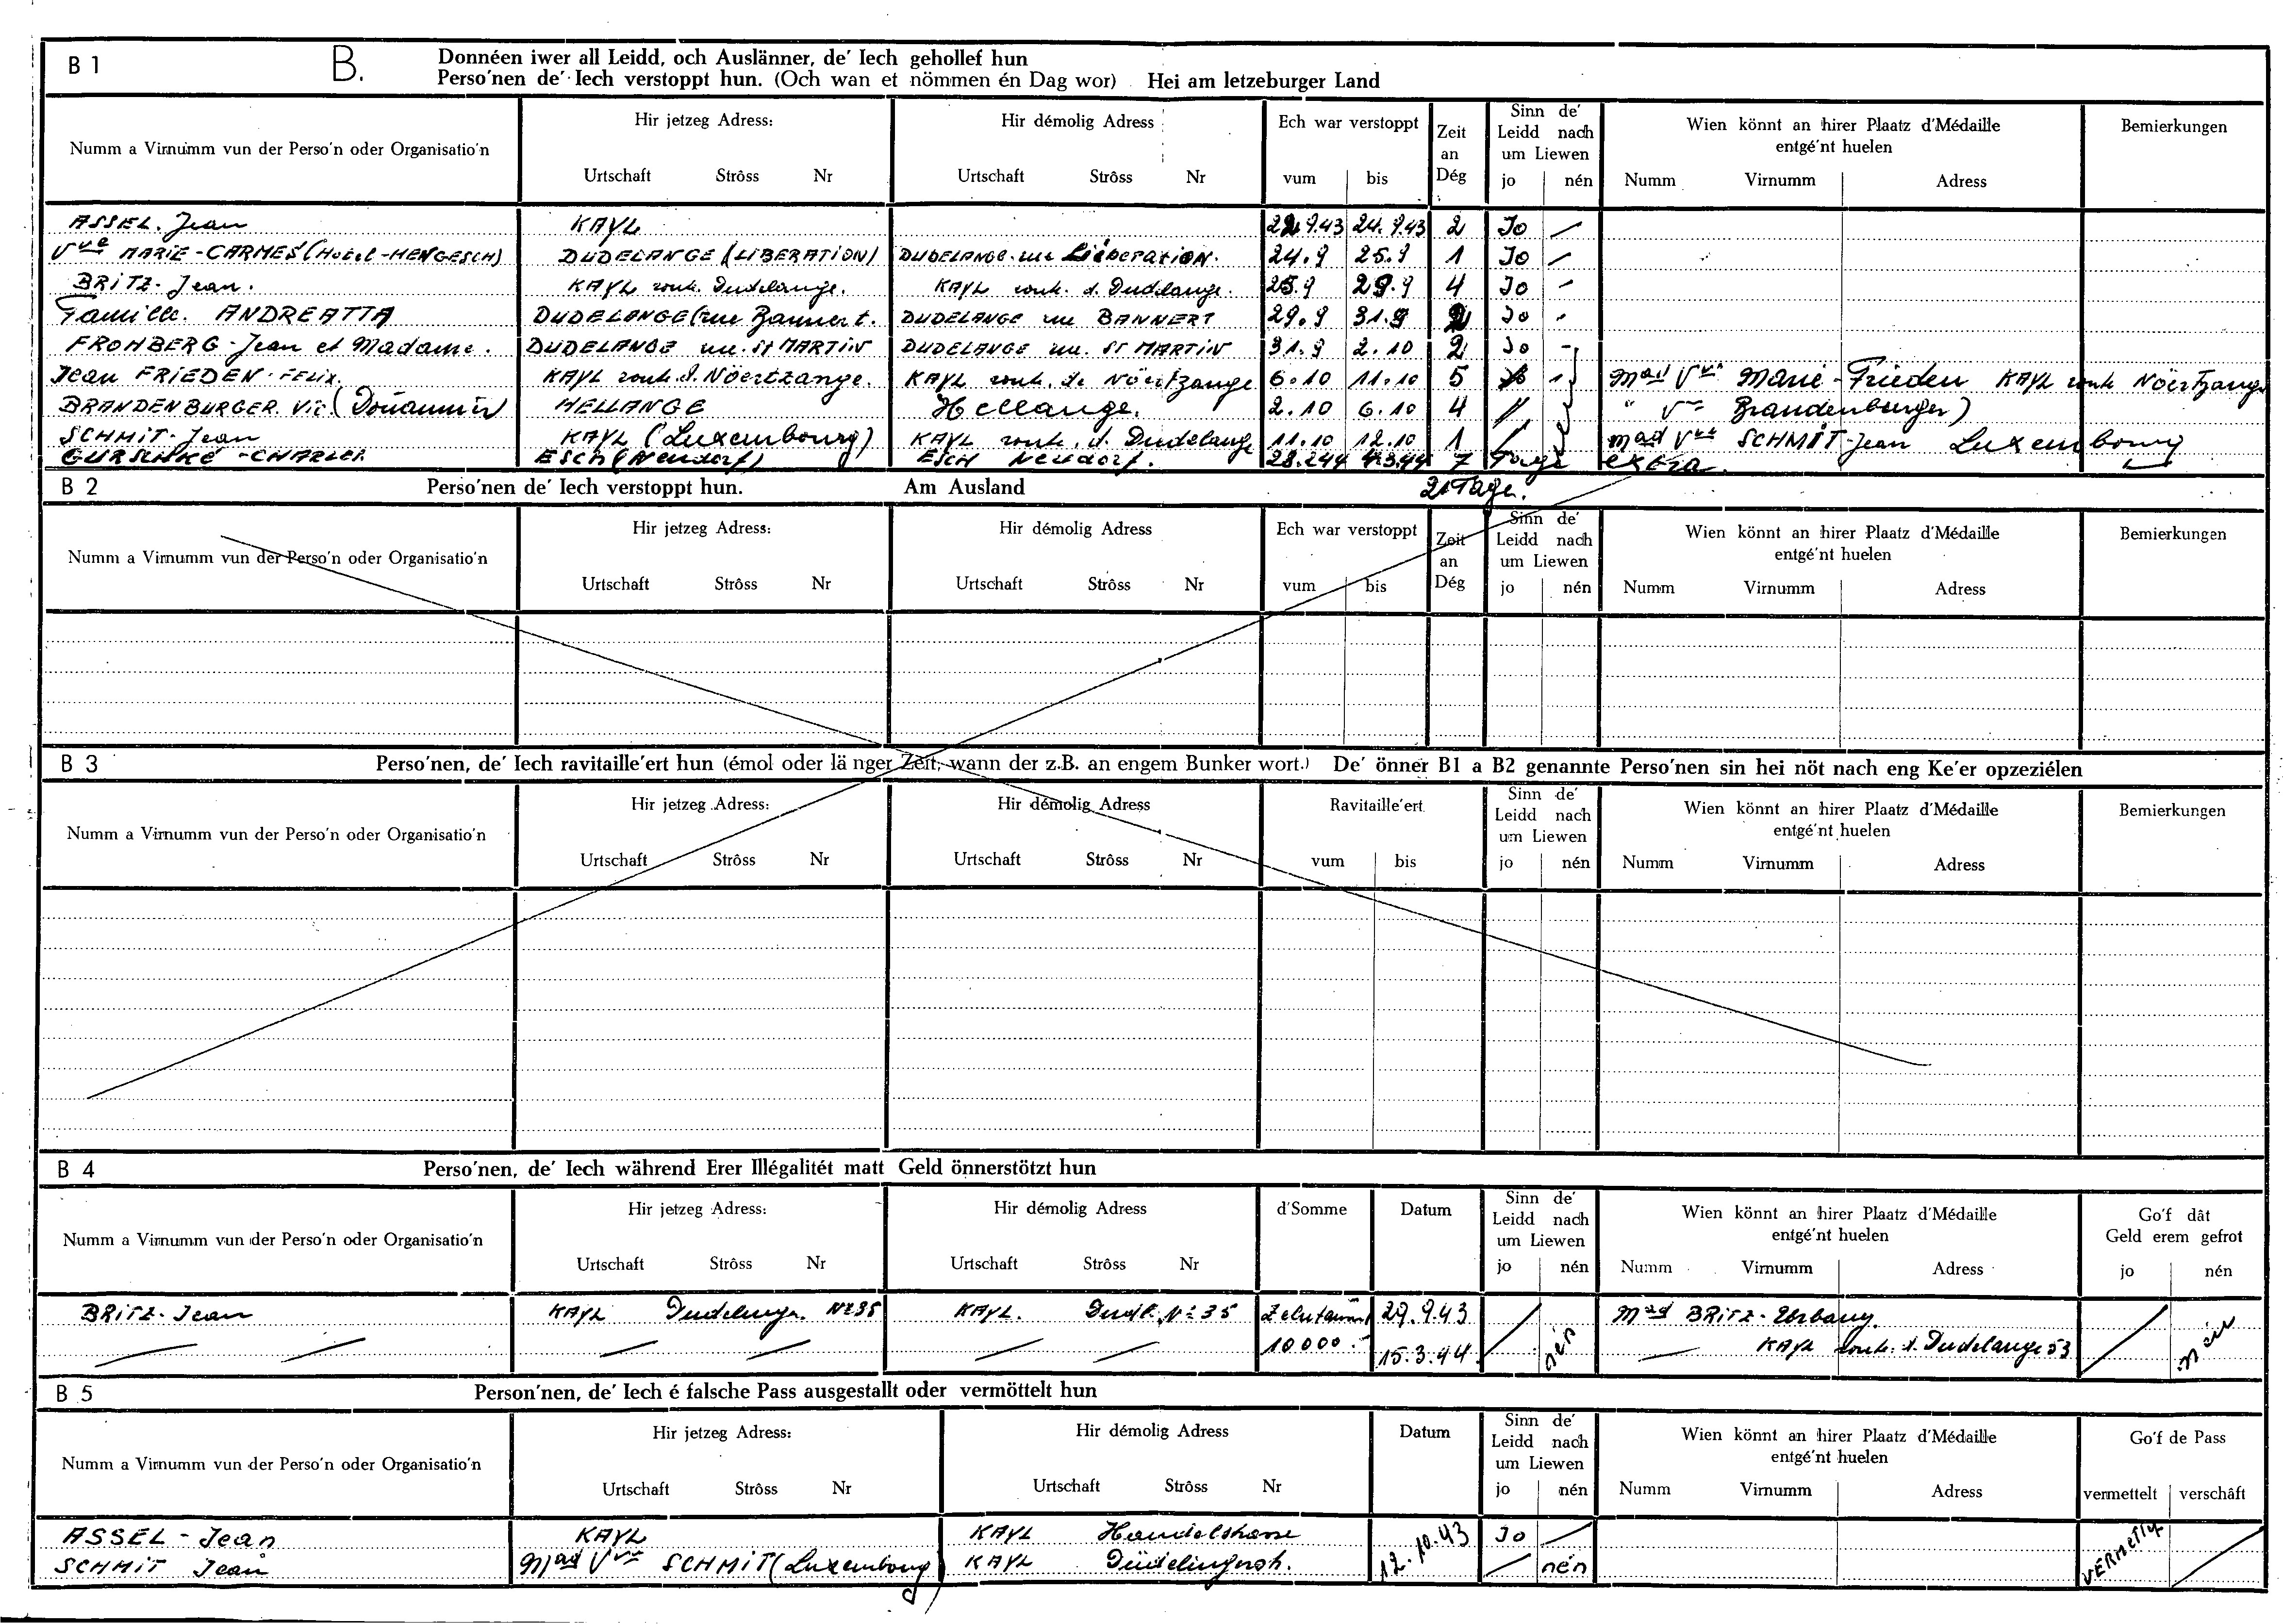 B 1 B. Donnéen iwer all Leidd, och Auslänner, de' Iech gehollef hun
Perso'nen de' Iech verstoppt hun. (Och wan et nömmen én Dag wor) Hei am letzeburger Land
Numm a Virnumm vun der Perso'n oder Organisatio'n Hir jetzeg Adress: Hir démolig Adress Ech war verstoppt Zeit an Dég Sinn de' Leidd nach um Liewen Wien könnt an hirer Plaatz d'Médaille entgé'nt huelen Bemierkungen
Urtschaft Strôss Nr Urtschaft Strôss Nr vum bis jo nén Numm Virnumm Adress
ASSEL. Jean KAYL 22.9.43 24.9.43 2 Jo /
Vve MARIE-CARMES (Hotel-HENGESCH) DUDELANGE (LIBERATION) DUDELANGE rue Liberation. 24.9 25.9 1 Jo /
BRITZ. Jean. KAYL rout. Dudelange. KAYL rout. d. Dudelange. 25.9 29.9 4 Jo -
Famille. ANDREATTA DUDELANGE (rue Bannert. DUDELANGE rue BANNERT 29.9 31.9 2 Jo -
FROHBERG-Jean et Madame. DUDELANGE rue. St MARTIN DUDELANGE rue. St MARTIN 31.9 2.10 2 Jo -
Jean FRIEDEN-FELIX. KAYL rout. d. Nöertzange. KAYL rout. de Nöertzange 6.10 11.10 5 Mad Vve Marie-Frieden KAYL route Nöertzange
BRANDENBURGER. Vic. (Douannier) HELLANGE Hellange. 2.10 6.10 4 // " Vve Brandenburger)
SCHMIT-Jean KAYL (Luxembourg) KAYL route. d. Dudelange 11.10 12.10 1 Mad Vve SCHMIT-Jean Luxembourg
-CHARLES ESCH (Neudorf) ESCH Neudorf. 28.2.44 7 Tage extra.
B 2 Perso'nen de' Iech verstoppt hun. Am Ausland 21 Tage.
Numm a Virnumm vun der Perso'n oder Organisatio'n Hir jetzeg Adress: Hir démolig Adress Ech war verstoppt Zeit an Dég Sinn de' Leidd nach um Liewen Wien könnt an hirer Plaatz d'Médaille entgé'nt huelen Bemierkungen
Urtschaft Strôss Nr Urtschaft Strôss Nr vum bis jo nén Numm Virnumm Adress
B 3 Perso'nen, de' Iech ravitaille'ert hun (émol oder länger Zeit, wann der z.B. an engem Bunker wort.) De' önner B1 a B2 genannte Perso'nen sin hei nöt nach eng Ke'er opzeziélen
Numm a Virnumm vun der Perso'n oder Organisatio'n Hir jetzeg Adress: Hir démolig Adress Ravitaille'ert Sinn de' Leidd nach um Liewen Wien könnt an hirer Plaatz d'Médaille entgé'nt huelen Bemierkungen
Urtschaft Strôss Nr Urtschaft Strôss Nr vum bis jo nén Numm Virnumm Adress
B 4 Perso'nen, de' Iech während Erer Illégalitét matt Geld önnerstötzt hun
Numm a Virnumm vun der Perso'n oder Organisatio'n Hir jetzeg Adress: Hir démolig Adress d'Somme Datum Sinn de' Leidd nach um Liewen Wien könnt an hirer Plaatz d'Médaille entgé'nt huelen Go'f dât Geld erem gefrot
Urtschaft Strôss Nr Urtschaft Strôss Nr jo nén Numm Virnumm Adress jo nén
BRITZ-Jean KAYL Dudelinger. No 35 KAYL. Dudl. No 35 29.9.43 / Mad BRITZ-Urbany.
10000.- 15.3.44. nén KAYL rout. d. Dudelange 53 / nén
B 5 Person'nen, de' Iech é falsche Pass ausgestallt oder vermöttelt hun
Numm a Virnumm vun der Perso'n oder Organisatio'n Hir jetzeg Adress: Hir démolig Adress Datum Sinn de' Leidd nach um Liewen Wien könnt an hirer Plaatz d'Médaille entgé'nt huelen Go'f de Pass
Urtschaft Strôss Nr Urtschaft Strôss Nr jo nén Numm Virnumm Adress vermettelt verschâft
ASSEL-Jean KAYL KAYL 12.10.43 Jo / VERMETTLT /
SCHMIT Jean Mad Vve SCHMIT (Luxembourg) KAYL Düdelingerst. / nén